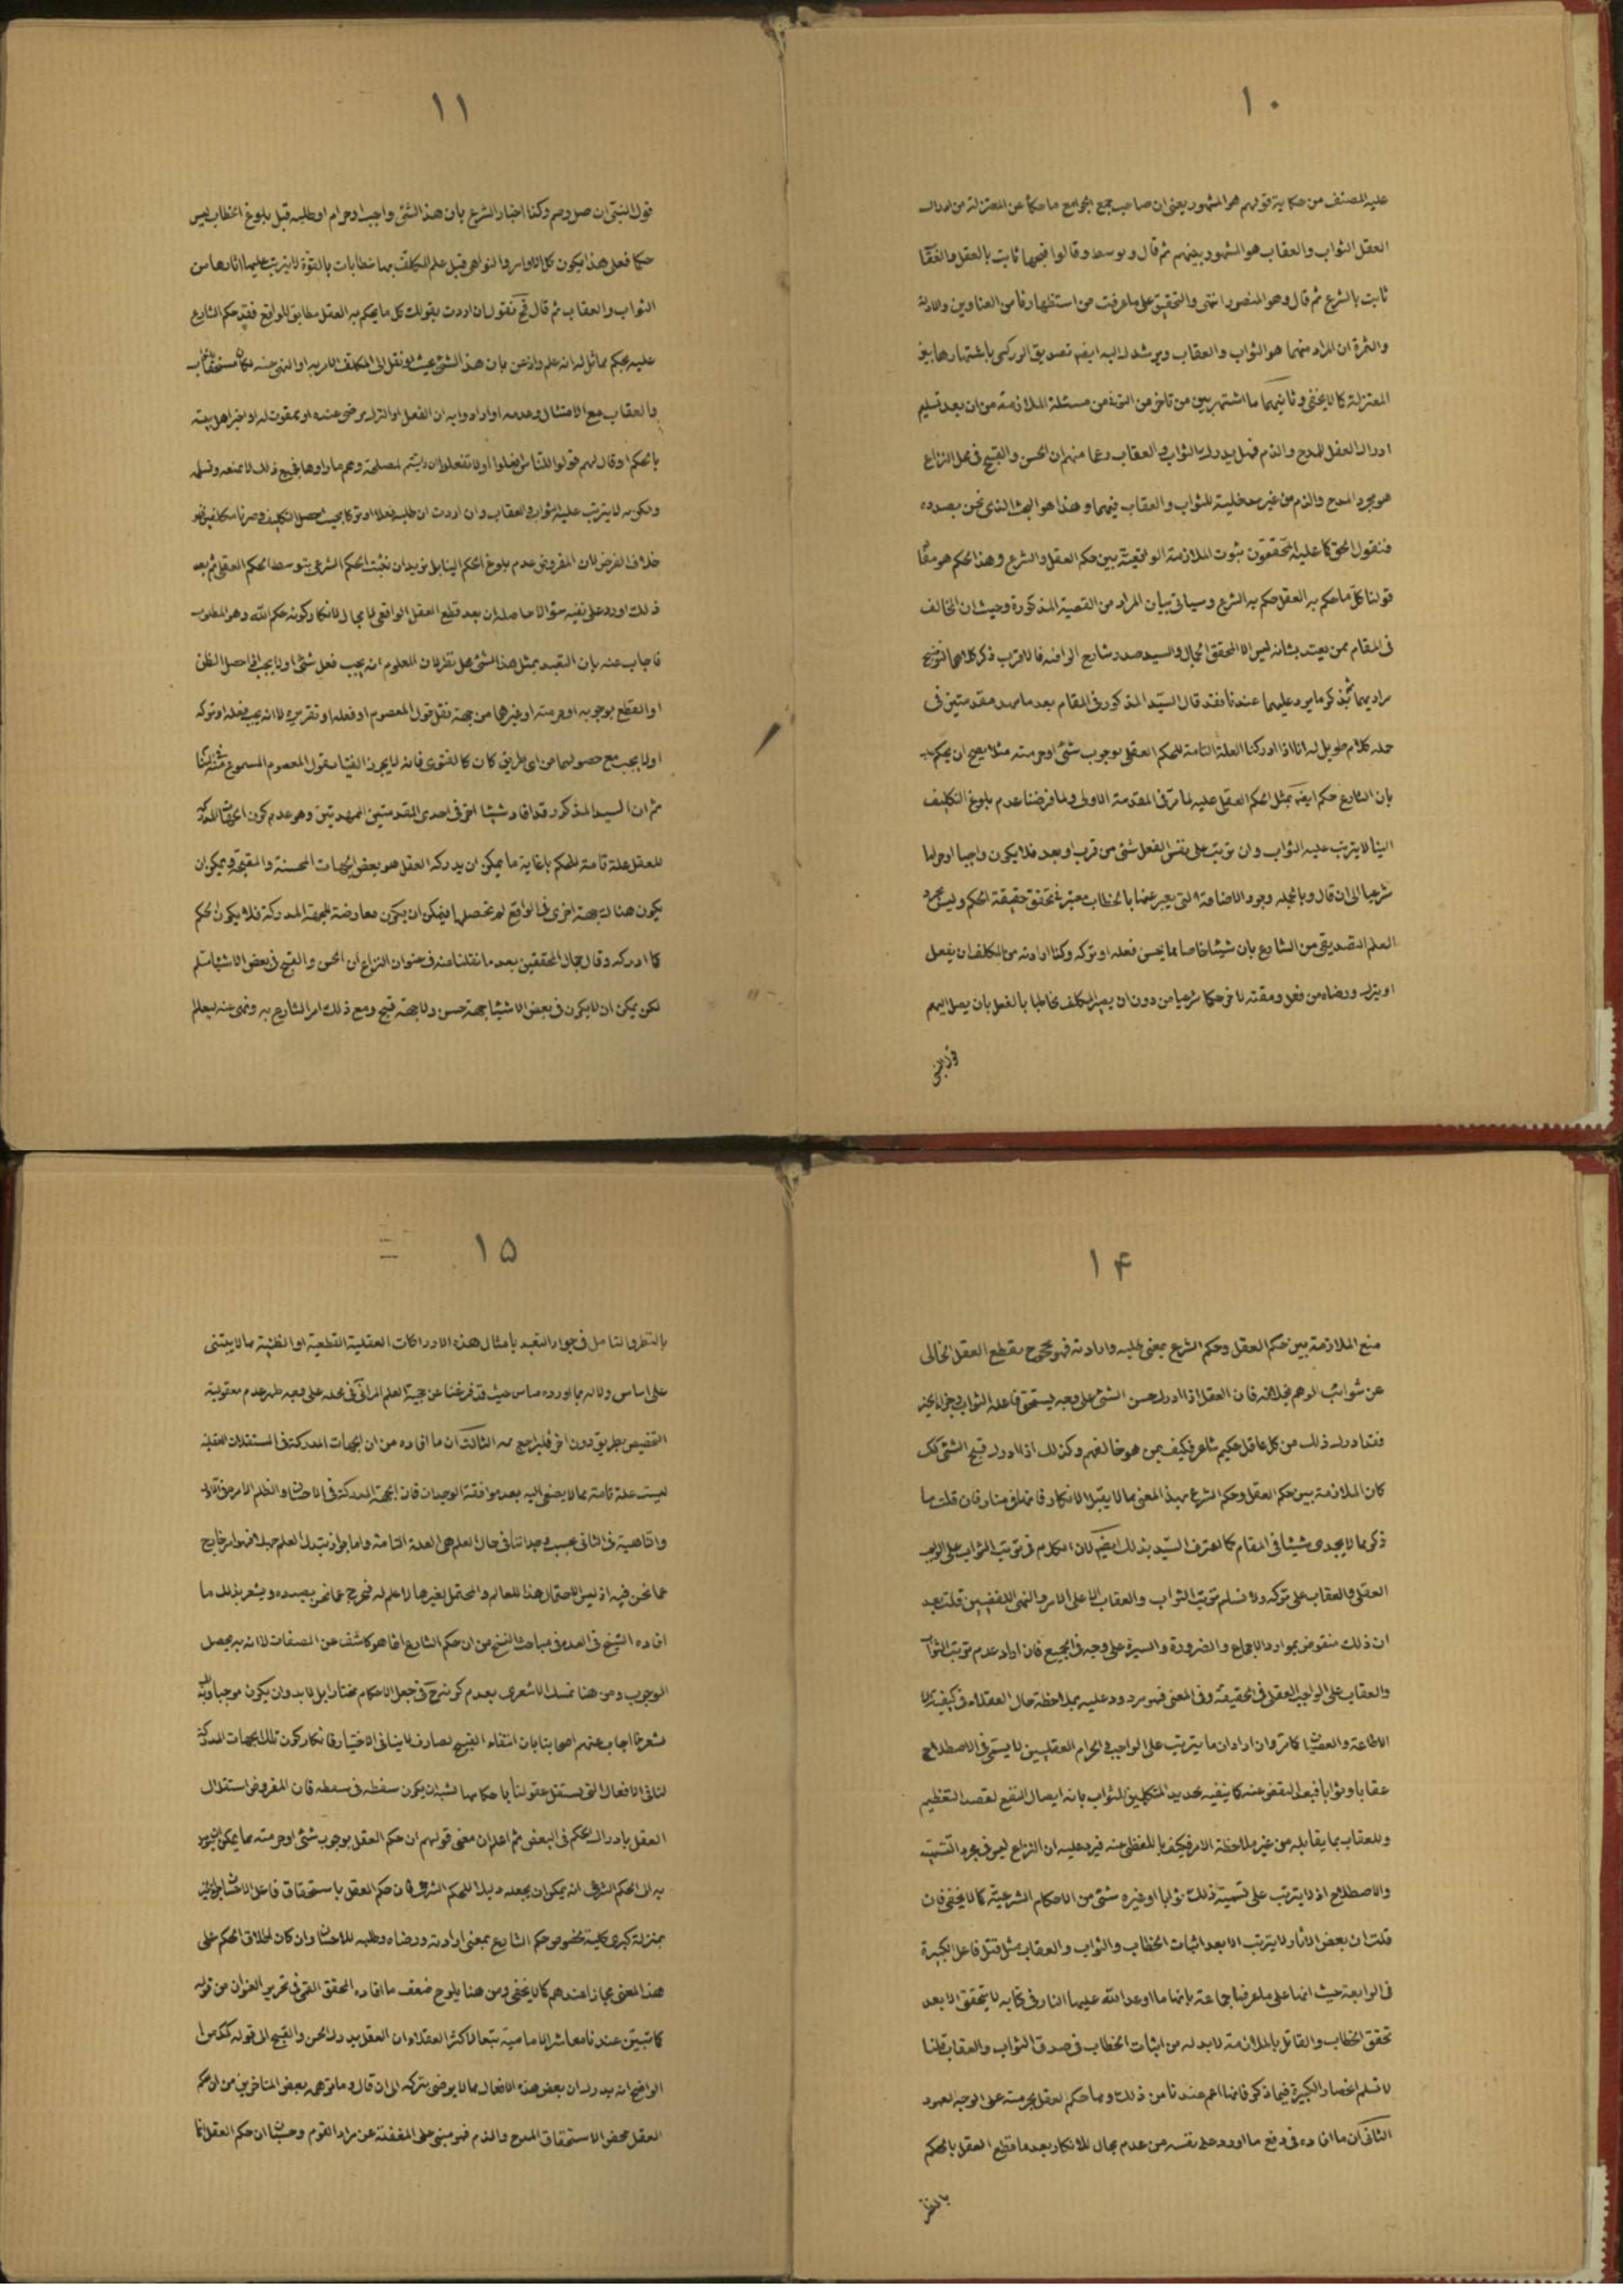 ١٠
عليه المصنف من حكاية قولهم هو المشهور يعنى ان صاحب جمع الجوامع ما حكاه عن المعتزلة من ادراك
العقل الثواب والعقاب هو المشهور بينهم ثم قال وتوسط وقالوا قبحها ثابت بالعقل والعقا
ثابت بالشرع ثم قال وهو المنصور انتهى والتحقيق على ما عرفت من استظهارنا من العناوين والادلة
والثمرة ان المراد منهما هو الثواب والعقاب ويرشد اليه ايضا تصديق الزركشى باشتهارها بين
المعتزلة كما لا يخفى وثانيهما ما اشتهر بين من تاخر من التونى من مسئلة الملازمة من ان بعد تسليم
ادراك العقل للمدح والذم فهل يدرك الثواب والعقاب زعما منهم ان الحسن والقبح فى محل النزاع
هو مجرد المدح والذم من غير مدخلية للثواب والعقاب فيهما وهذا هو البحث الذى نحن بصدده
فنقول الحق كما عليه المحققون ثبوت الملازمة الواقعية بين حكم العقل والشرع وهذا الحكم هو مفا
قولنا كل ما حكم به العقل حكم به الشرع وسياتى بيان المراد من القضية المذكورة وحيث ان المخالف
فى المقام ممن يعتد بشانه ليس الا المحقق الجمال والسيد صدر شارح الوافية فالاقرب ذكر كلامهما لتوضيح
مرادهما ثم نذكر ما يرد عليهما عندنا فقد قال السيد المذكور فى المقام بعد ما مهد مقدمتين فى
جملة كلام طويل له انا اذا ادركنا العلة التامة للحكم العقلى بوجوب شئ او حرمته مثلا يصح ان يحكم
بان الشارع حكم ايضا بمثل الحكم العقلى عليه لما مر فى المقدمة الاولى ولما فرضنا عدم بلوغ التكليف
الينا لا يترتب عليه الثواب وان ترتب على نفس الفعل شئ من قرب او بعد فلا يكون واجبا او حراما
شرعيا الى ان قال وبالجملة وجود الاضافة التى يعبر عنها بالخطاب معتبر فى تحقق حقيقة الحكم وليس مجرد
العلم التصديقى من الشارع بان شيئا خاصا مما يحسن فعله او تركه وكذا ارادته من المكلف ان يفعل
او يترك ورضاه من فعل ومقته لاخر حكما شرعيا من دون ان يصير المكلف مخاطبا بالفعل بان يصل اليهم
قول النبى
١١
قول النبى ان صل وصم وكذا اخبار الشرع بان هذا الشئ واجب او حرام او طلبه قبل بلوغ الخطاب ليس
حكما فعلى هذا يكون كل الاوامر والنواهى قبل علم المكلف بهما خطابات بالقوة لا يترتب عليها اثارها من
الثواب والعقاب ثم قال فح نقول ان اردت بقولك كل ما يحكم به العقل مطابق للواقع فقد حكم الشارع
عليه بحكم مماثل له انه علم واذعن بان هذا الشئ بحيث لو نقل الى المكلف الامر به او النهى عنه لكان مستحقا للثواب
والعقاب مع الامتثال وعدمه او ارادوا به ان الفعل او الترك مرضى عنده او ممقوت له او اخبر اهل بيته
بالحكم او قال لهم قولوا للناس افعلوا او لا تفعلوا ان رايتم لمصلحة وهم ما راوها فجميع ذلك لا نمنعه ونسلمه
ولكن به لا يترتب عليه الثواب والعقاب وان اردت ان طلبه فعلا او تركا بحيث حصل التكليف وصرنا مكلفين فهو
خلاف الفرض لان المفروض عدم بلوغ الحكم الينا بل نريد ان نثبت الحكم الشرعى بتوسط الحكم العقلى ثم بعد
ذلك اورد على نفسه سؤالا حاصله ان بعد قطع العقل الواقعى لا مجال لانكار كونه حكم الله وهو المطلوب
فاجاب عنه بان التعبد بمثل هذا الشئ محل نظر لان المعلوم انه يجب فعل شئ او لا يجب اذا حصل الظن
او القطع بوجوبه او حرمته او غيرهما من جهة نقل قول المعصوم او فعله او تقريره لا انه يجب فعله او تركه
او لا يجب مع حصولهما من اى طريق كان كما لو فتوى فانه لا يجوز الفتيا بقول المعصوم المسموع
ثم ان السيد المذكور قد افاد شيئا اخر فى احدى المقدمتين الممهدتين وهو عدم كون الجهات المدركة
للعقل علة تامة للحكم بل غاية ما يمكن ان يدركه العقل هو بعض الجهات المحسنة والمقبحة ويمكن ان
يكون هناك جهة اخرى فى الواقع لم تحصل له فيمكن ان يكون معارضة للجهة المدركة فلا يكون الحكم
كما ادركه وقال جمال المحققين بعد ما نقلنا منه فى عنوان النزاع ان الحسن والقبح فى بعض الاشياء مسلم
لكن يمكن ان لا يكون فى بعض الاشياء جهة حسن ولا جهة قبح ومع ذلك امر الشارع به ونهى عنه ليعلم
١۴
منع الملازمة بين حكم العقل وحكم الشرع بمعنى طلبه وارادته فهو محجوج بقطع العقل الخالى
عن شوائب الوهم بخلافه فان العقل اذا ادرك حسن الشئ على وجه يستحق فاعله الثواب وجزاء الخير
فقد ادرك ذلك من كل عاقل حكيم شاعر فكيف بمن هو خالقهم وكذلك اذا ادرك قبح الشئ كك
كان الملازمة بين حكم العقل وحكم الشرع بهذا المعنى مما لا يقبل الانكار فان قلت ما
ذكر مما لا يجدى شيئا فى المقام كما اعترف السيد بذلك ايضا لان الكلام فى ترتب الثواب على الواجب
العقلى والعقاب على تركه ولا نسلم ترتب الثواب والعقاب الا على الامر والنهى اللفظيين قلت بعد
ان ذلك منقوض بموارد الاجماع والضرورة والسيرة على وجه فى الجميع فان اراد عدم ترتب الثواب
والعقاب على الواجب العقلى فى الحقيقة وفى المعنى فهو مردود عليه بملاحظة حال العقلاء فى كيفية
الاطاعة والعصيان كما مر وان اراد ان ما يترتب على الواجب والحرام العقليين لا يسمى فى الاصطلاح
عقابا وثوابا فبعد الغض عنه كما ينفيه تحديد المتكلمين الثواب بانه ايصال النفع لقصد التعظيم
وللعقاب بما يقابله من غير ملاحظة الامر فكيف باللفظى منه فيرد عليه ان النزاع ليس فى مجرد التسمية
والاصطلاح اذ لا يترتب على تسمية ذلك ثوابا او غيره شئ من الاحكام الشرعية كما لا يخفى فان
قلت ان بعض الاثار لا يترتب الا بعد اثبات الخطاب والثواب والعقاب مثل قتل فاعل الكبيرة
فى الرابعة حيث انها على ما عرفها جماعة بانها ما اوعد الله عليها النار فى كتابه لا يتحقق الا بعد
تحقق الخطاب والقائل بالملازمة لا بد له من اثبات الخطاب فى صدق الثواب والعقاب قلنا
لا نسلم انحصار الكبيرة فيما ذكر فانها اعم عندنا من ذلك ومما حكم العقل بحرمته على الوجه المعهود
الثانى ان ما افاده فى دفع ما اورد على نفسه من عدم مجال للانكار بعد ما قطع العقل بالحكم
بالنظر
١۵
بالنظر والتامل فى جواز التعبد بامثال هذه الادراكات العقلية القطعية او الظنية مما لا يبتنى
على اساس ولا له بما اورده مساس حيث قد فرغنا عن حجية العلم المرآتى فى محله على وجه ظهر عدم معقولية
التخصيص بطريق دون اخر فليراجع ثمه الثالث ان ما افاده من ان الجهات المدركة فى المستقلات العقلية
ليست علة تامة مما لا يصغى اليه بعد موافقة الوجدان فان الجهة المدركة فى الاحسان والظلم الامر فى الاول
والناهية فى الثانى بحسب وجداننا فى حال العلم هى العلة التامة واما جواز تبدل العلم جهلا فهو امر خارج
عما نحن فيه اذ ليس الاحتمال هذا للعالم والمحتمل لغيرها لا علم له فخرج عما نحن بصدده ويشعر بذلك ما
افاده الشيخ فى العدة فى مباحث النسخ من ان حكم الشارع انما هو كاشف عن الصفات لا انه به يحصل
الوجوب ومن هنا تمسك الاشعرى بعدم كونه تعالى فى جعل الاحكام مختارا بل لا بد وان يكون موجبا
شعرنا اجاب عنهم اصحابنا بان انتفاء القبيح لصارف لا ينافى الاختيار فانكار كون تلك الجهات المدركة
لنا فى الافعال التى يستقل عقولنا باحكامها لشبه ان يكون سفطه فى سفطه فان المفروض استقلال
العقل بادراك الحكم فى البعض ثم اعلم ان معنى قولهم ان حكم العقل بوجوب شئ او حرمته مما يمكن ان يتوصل
به الى الحكم الشرعى انه يمكن ان يجعله دليلا للحكم الشرعى فان حكم العقل باستحقاق فاعل الاحسان جزاء الخير
بمنزلة كبرى كلية لخصوص حكم الشارع بمعنى ارادته ورضاه وطلبه للاحسان وان كان اطلاق الحكم على
هذا المعنى مجازا عندهم كما لا يخفى ومن هنا يلوح ضعف ما افاده المحقق القمى فى تحرير العنوان من قوله
كما تبين عندنا معاشر الامامية تبعا لاكثر العقلاء ان العقل يدرك الحسن والقبح الى قوله كك من
الواضح انه يدرك ان بعض هذه الافعال مما لا يرضى بتركه الى ان قال وما توهمه بعض المتاخرين من ان حكم
العقل محض الاستحقاق المدح والذم فهو مبنى على الغفلة عن مراد القوم وحسبان ان حكم العقل انما